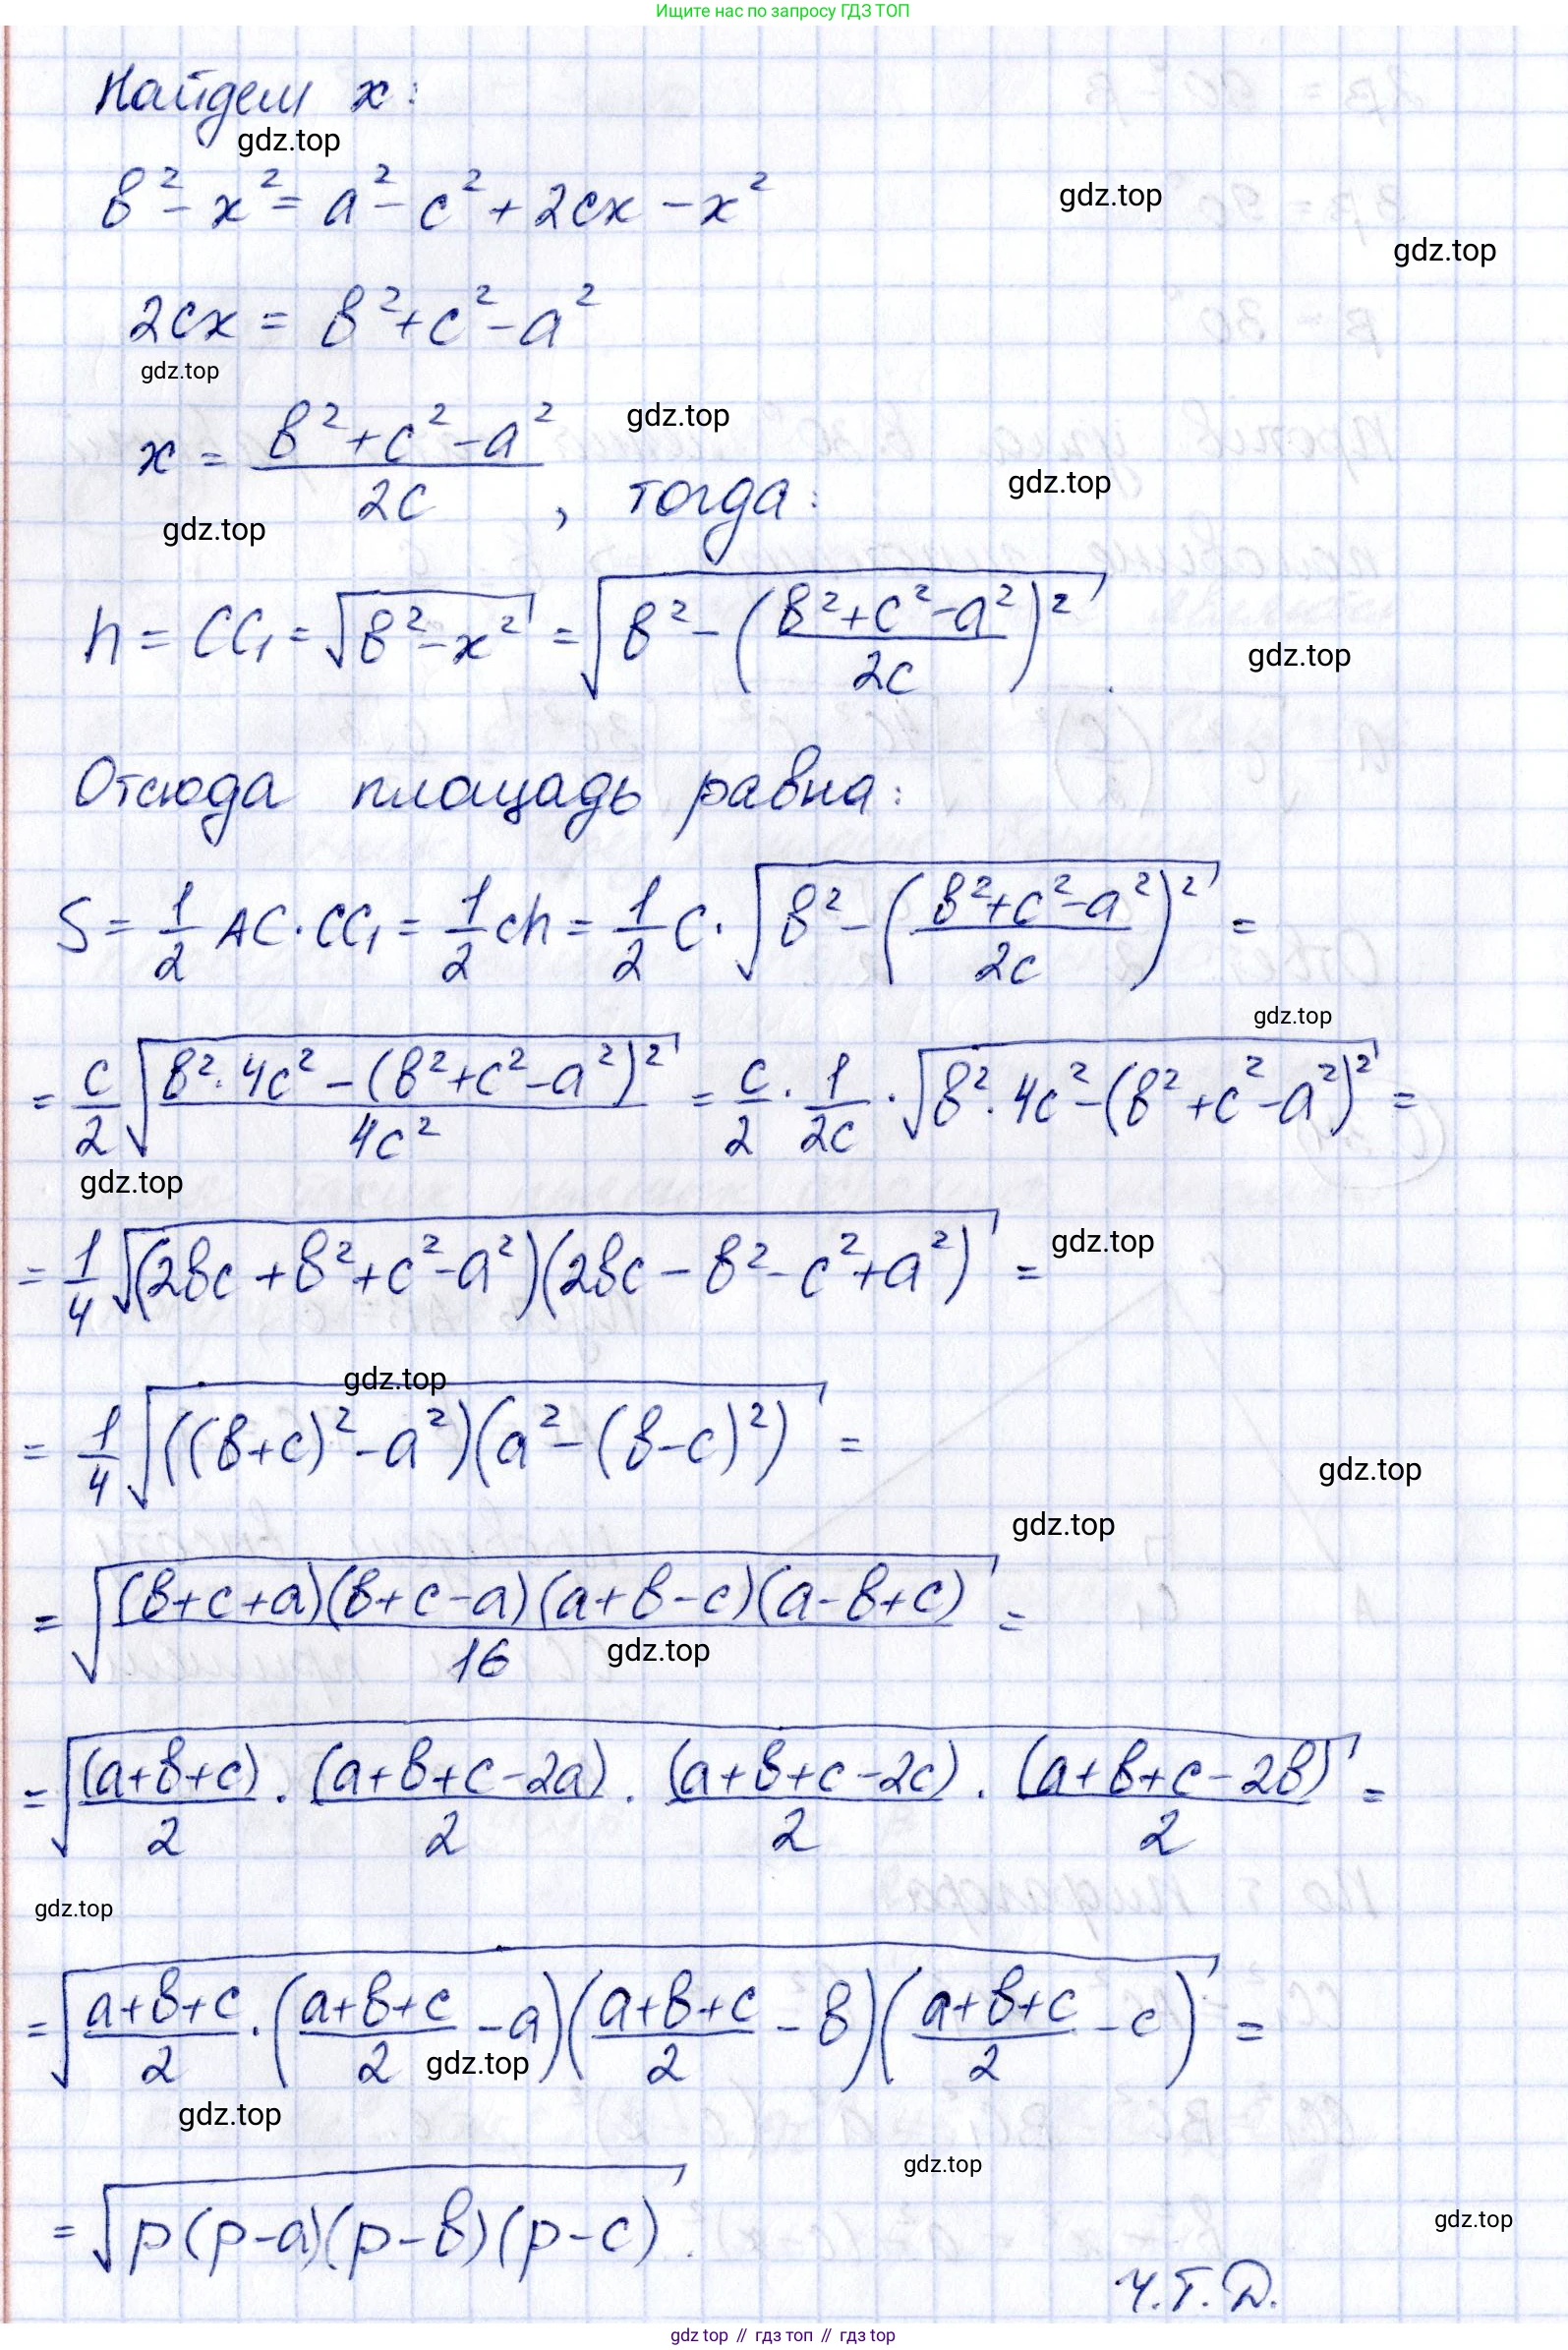 Ищите нас по запросу ГДЗ ТОП
Найдем x:
gdz.top
b² - x² = a² - c² + 2cx - x²
gdz.top
gdz.top
2cx = b² + c² - a²
gdz.top
x = (b² + c² - a²)/(2c), тогда:
gdz.top
gdz.top
gdz.top
h = CC₁ = √(b² - x²) = √(b² - ((b² + c² - a²)/(2c))²).
gdz.top
Отсюда площадь равна:
S = 1/2 AC · CC₁ = 1/2 ch = 1/2 c · √(b² - ((b² + c² - a²)/(2c))²) =
gdz.top
= c/2 √((b² · 4c² - (b² + c² - a²)²)/(4c²)) = c/2 · 1/(2c) · √(b² · 4c² - (b² + c² - a²)²) =
gdz.top
= 1/4 √((2bc + b² + c² - a²)(2bc - b² - c² + a²)) =
gdz.top
gdz.top
= 1/4 √(((b+c)² - a²)(a² - (b-c)²)) =
gdz.top
gdz.top
= √(((b+c+a)(b+c-a)(a+b-c)(a-b+c))/16) =
gdz.top
= √((a+b+c)/2 · (a+b+c-2a)/2 · (a+b+c-2c)/2 · (a+b+c-2b)/2) =
gdz.top
= √((a+b+c)/2 · ((a+b+c)/2 - a)((a+b+c)/2 - b)((a+b+c)/2 - c)) =
gdz.top
gdz.top
gdz.top
= √(p(p-a)(p-b)(p-c)).
gdz.top
Ч.Т.Д.
gdz top // гдз топ // гдз top